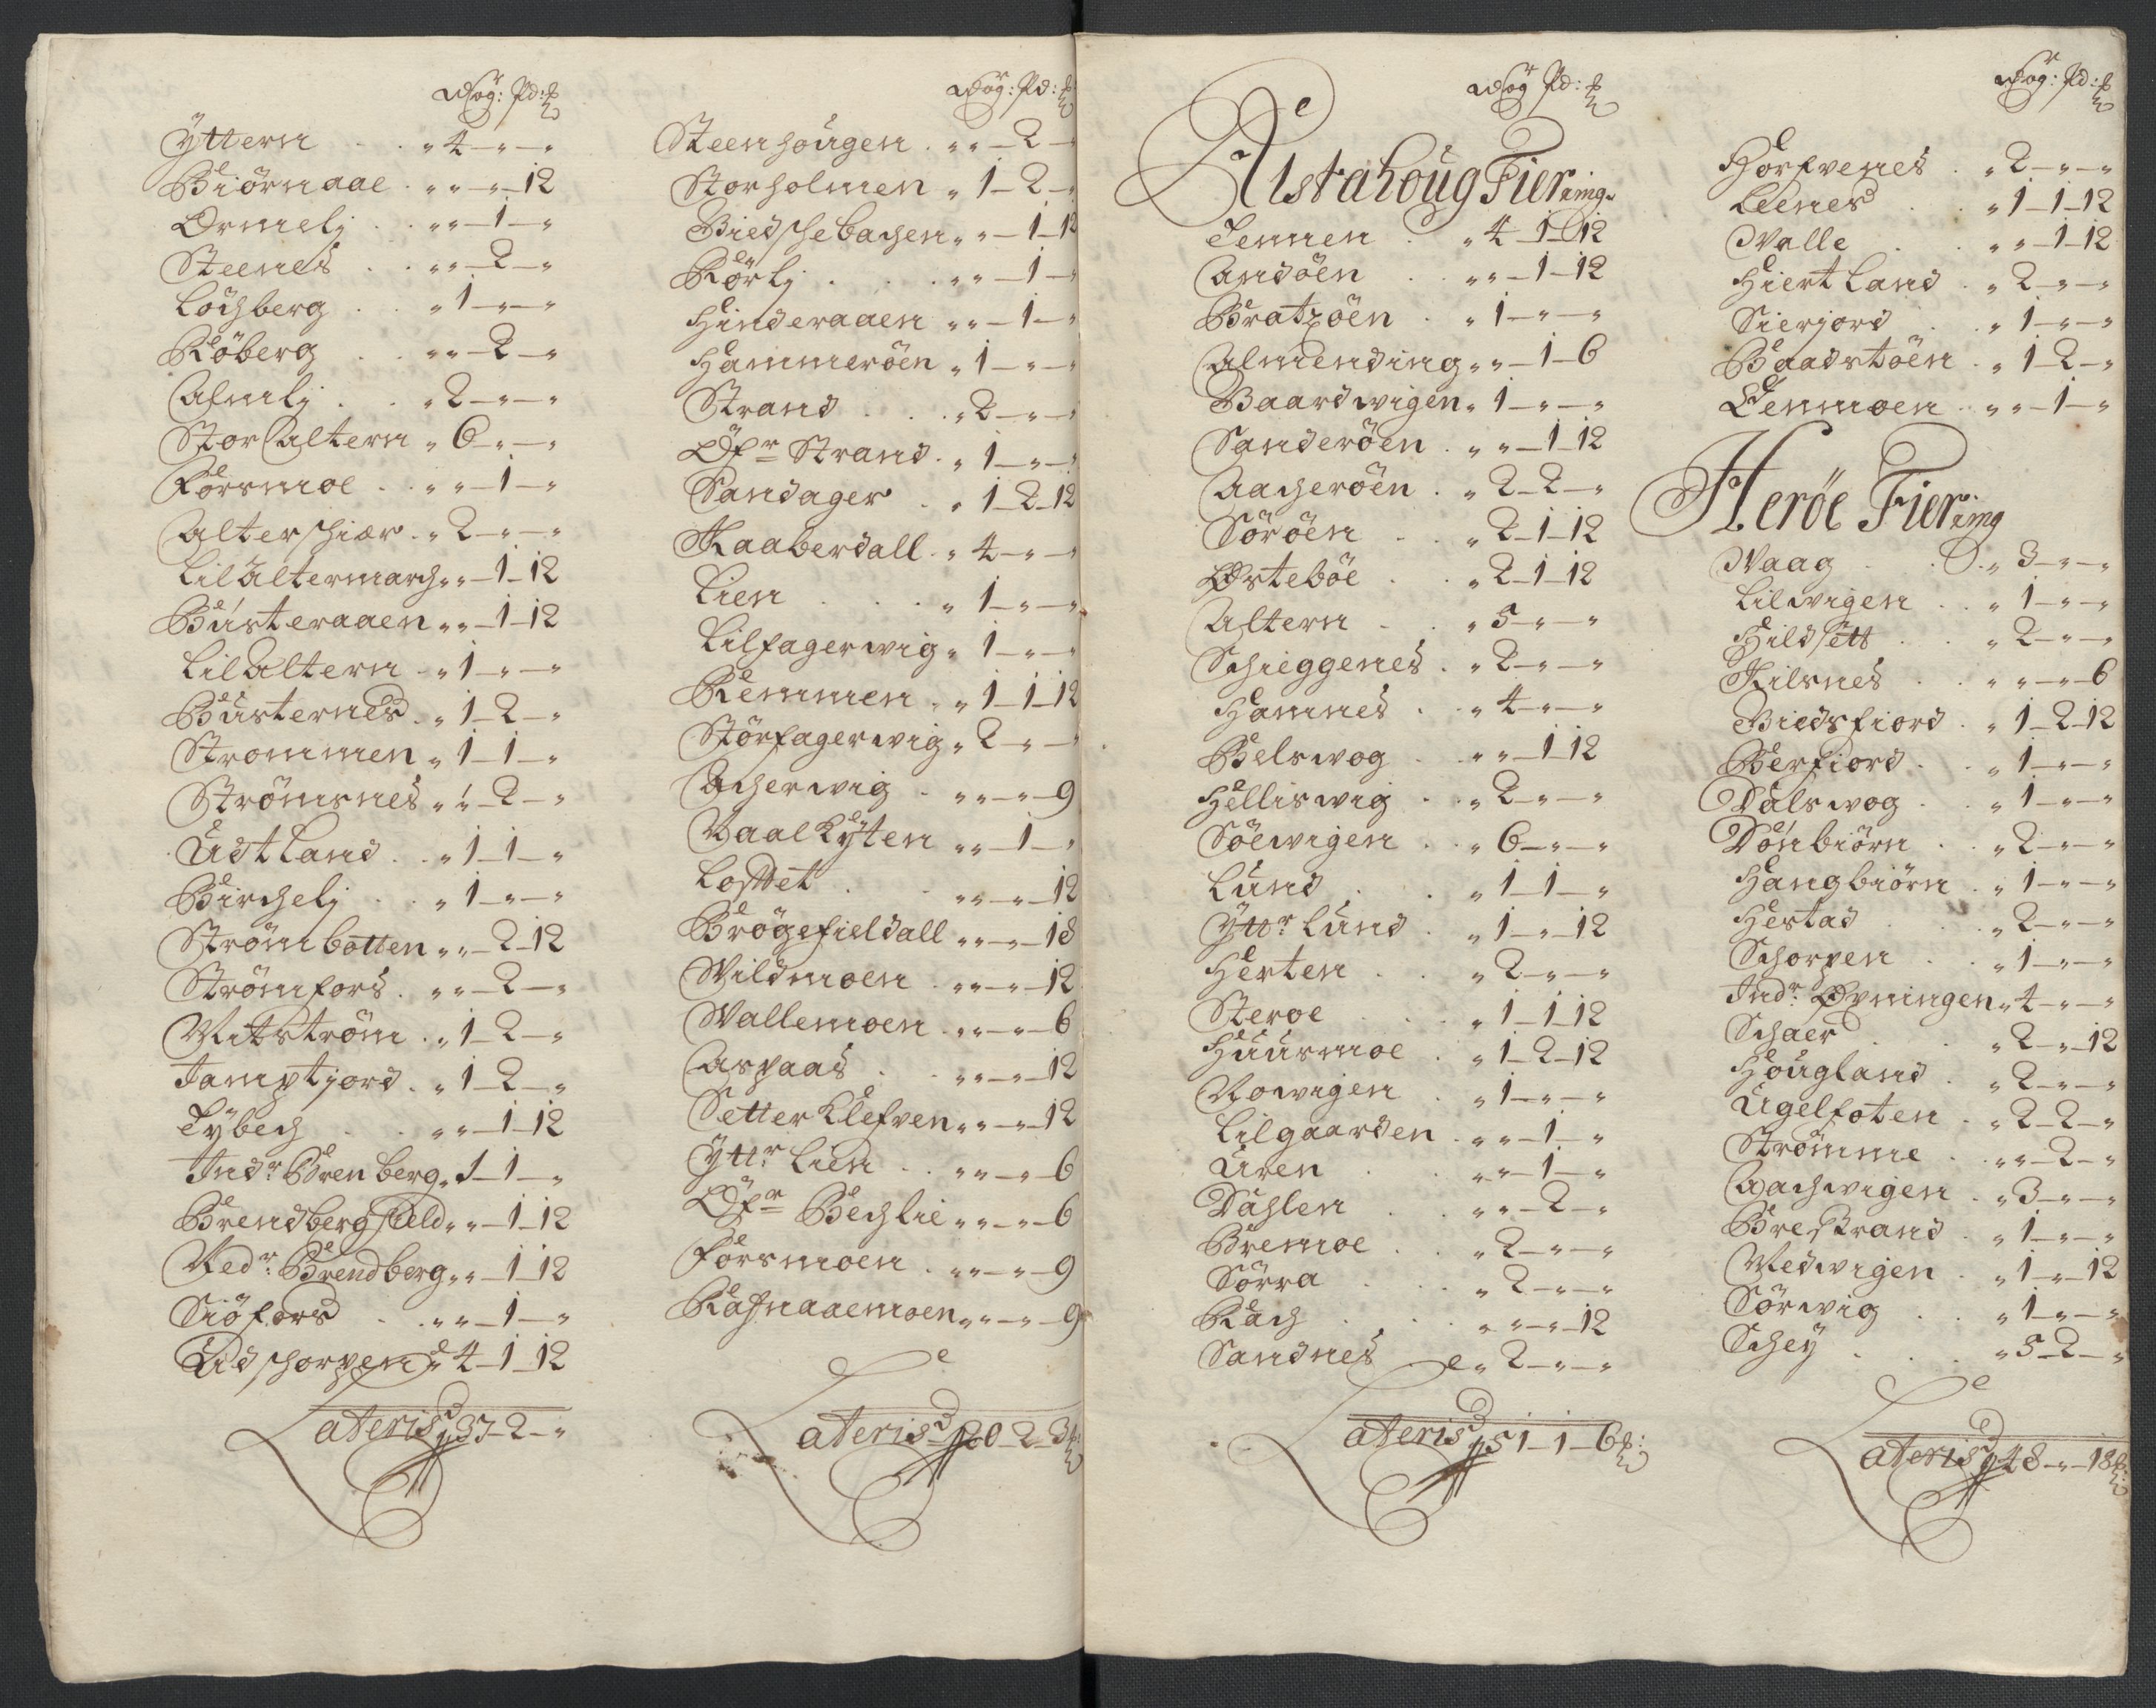 Wog: Pd: ℔
Ÿttern . . „ 4 – „ – „
Biörnaae . „ „ – „ – 12
Ormelj . . „ „ – 1 – „
Steenes . . „ „ – 2 – „
Lochberg . „ 1 – „ – „
Röberg . . „ „ – 2 – „
Almlj . . „ 2 – „ – „
Stor Altern „ 6 – „ – „
Forsmoe . . „ „ – 1 – „
Alterschiær . „ 2 – „ – „
Lil Altermarch „ „ – 1 – 12
Büsteraaen „ „ – 1 – 12
Lil Altern . „ 1 – „ – „
Büsternes . „ 1 – 2 – „
Strommen „ 1 – 1 – „
Strömsnes „ „ – 2 – „
Udtland . . „ 1 – 1 – „
Birchelj . . „ 1 – „ – „
Strömbotten „ „ – 2 – 12
Strömfors . „ „ – 2 – „
Mitström . „ 1 – 2 – „
Jamptjord . „ 1 – 2 – „
Tÿbech . . „ „ – 1 – 12
Indr Brenberg „ 1 – 1 – „
Brendbergfield „ „ – 1 – 12
Nedr: Brendberg „ „ – 1 – 12
Siöfors . . „ „ – 1 – „
Udschorpen „ 4 – 1 – 12
Lateris 37 – 2 – „
Wog: Pd: ℔
Steenhougen . „ „ – 2 – „
Storholmen „ 1 – 2 – „
Biedschebachen „ „ – 1 – 12
Rörlj . . . „ „ – 1 – „
Hinderaaen „ „ – 1 – „
Hammeröen „ 1 – „ – „
Strand . . . „ 2 – „ – „
Öfr Strand . „ 1 – „ – „
Sandager . „ 1 – 2 – 12
Kaaberdall . „ 4 – „ – „
Lien . . . „ 1 – „ – „
Lilfagerwig „ 1 – „ – „
Remmen . „ 1 – 1 – 12
Störfagerwig „ 2 – „ – „
Acherwig . „ „ – „ – 9
Baalkÿten „ „ – 1 – „
Losset . . „ „ – „ – 12
Brögefieldall „ „ – „ – 18
Wildmoen . „ „ – „ – 12
Wallemoen . „ „ – „ – 6
Aspaas . . „ „ – „ – 12
Setterklefven „ „ – „ – 12
Ÿttr Lien . . „ „ – „ – 6
Öfr Bechlie „ „ – „ – 6
Forsmoen . „ „ – „ – 9
Rafnaaemoen „ „ – „ – 9
Lateris 20 – 2 – 3 ℔
Wog Pd: ℔
Alstahoug Fiering.
Tennen . „ 4 – 1 – 12
Andöen . „ „ – 1 – 12
Bratzöen . „ 1 – „ – „
Almending „ „ – 1 – 6
Baardwigen „ 1 – „ – „
Sanderöen . „ „ – 1 – 12
Aacheröen . „ 2 – 2 – „
Söröen . . „ 2 – 1 – 12
Osteböe . . „ 2 – 1 – 12
Altern . . „ 5 – „ – „
Schieggenes . „ 2 – „ – „
Hamnes . . „ 4 – „ – „
Belswog . . „ „ – 1 – 12
Helliswig . „ 2 – „ – „
Söewigen . „ 6 – „ – „
Lund . . „ 1 – 1 – „
Ÿttr Lund . „ 1 – „ – 12
Herten . . „ 2 – „ – „
Steroe . . „ 1 – 1 – 12
Huusmoe . „ 1 – 2 – 12
Nowigen . „ 1 – „ – „
Lilgaarden . „ „ – 1 – „
Uren . . „ „ – 1 – „
Dahlen . . „ „ – 2 – „
Bremoe . . „ 2 – „ – „
Sörra . . „ 2 – „ – „
Rach . . . „ „ – „ – 12
Sandnes . „ 2 – „ – „
Lateris 51 – 1 – 6 ℔:
Wog: Pd: ℔
Horfvenes . „ 2 – „ – „
Leenes . . „ 1 – 1 – 12
Walle . . „ „ – 1 – 12
Hiertland . „ 2 – „ – „
Sierjord . . „ 1 – „ – „
Baadstöen . „ 1 – 2 – „
Tenmoen . „ „ – 1 – „
Heröe Fiering
Waag . . „ 3 – „ – „
Lilwigen . . „ 1 – „ – „
Hildsett . . „ 2 – „ – „
Kilsnes . . „ „ – „ – 6
Biedsfiord . „ 1 – 2 – 12
Berfiord . . „ 1 – „ – „
Dalswog . . „ 1 – „ – „
Dönbiörn . . „ 2 – „ – „
Hangbiörn . „ 1 – „ – „
Hestad . . „ 2 – „ – „
Schorpen . . „ 1 – „ – „
Indr. Øpningen „ 4 – „ – „
Schaer . . „ 2 – „ – 12
Hougland . „ 2 – „ – „
Ugelfoten . „ 2 – 2 – „
Strömme . „ „ – 2 – „
Aachwigen . „ 3 – „ – „
Brestrand . „ 1 – „ – „
Nedwigen . „ 1 – „ – 12
Sörwig . . „ 1 – „ – „
Schey . . . „ 5 – 2 – „
Lateris 48 – „ – 18 ℔: